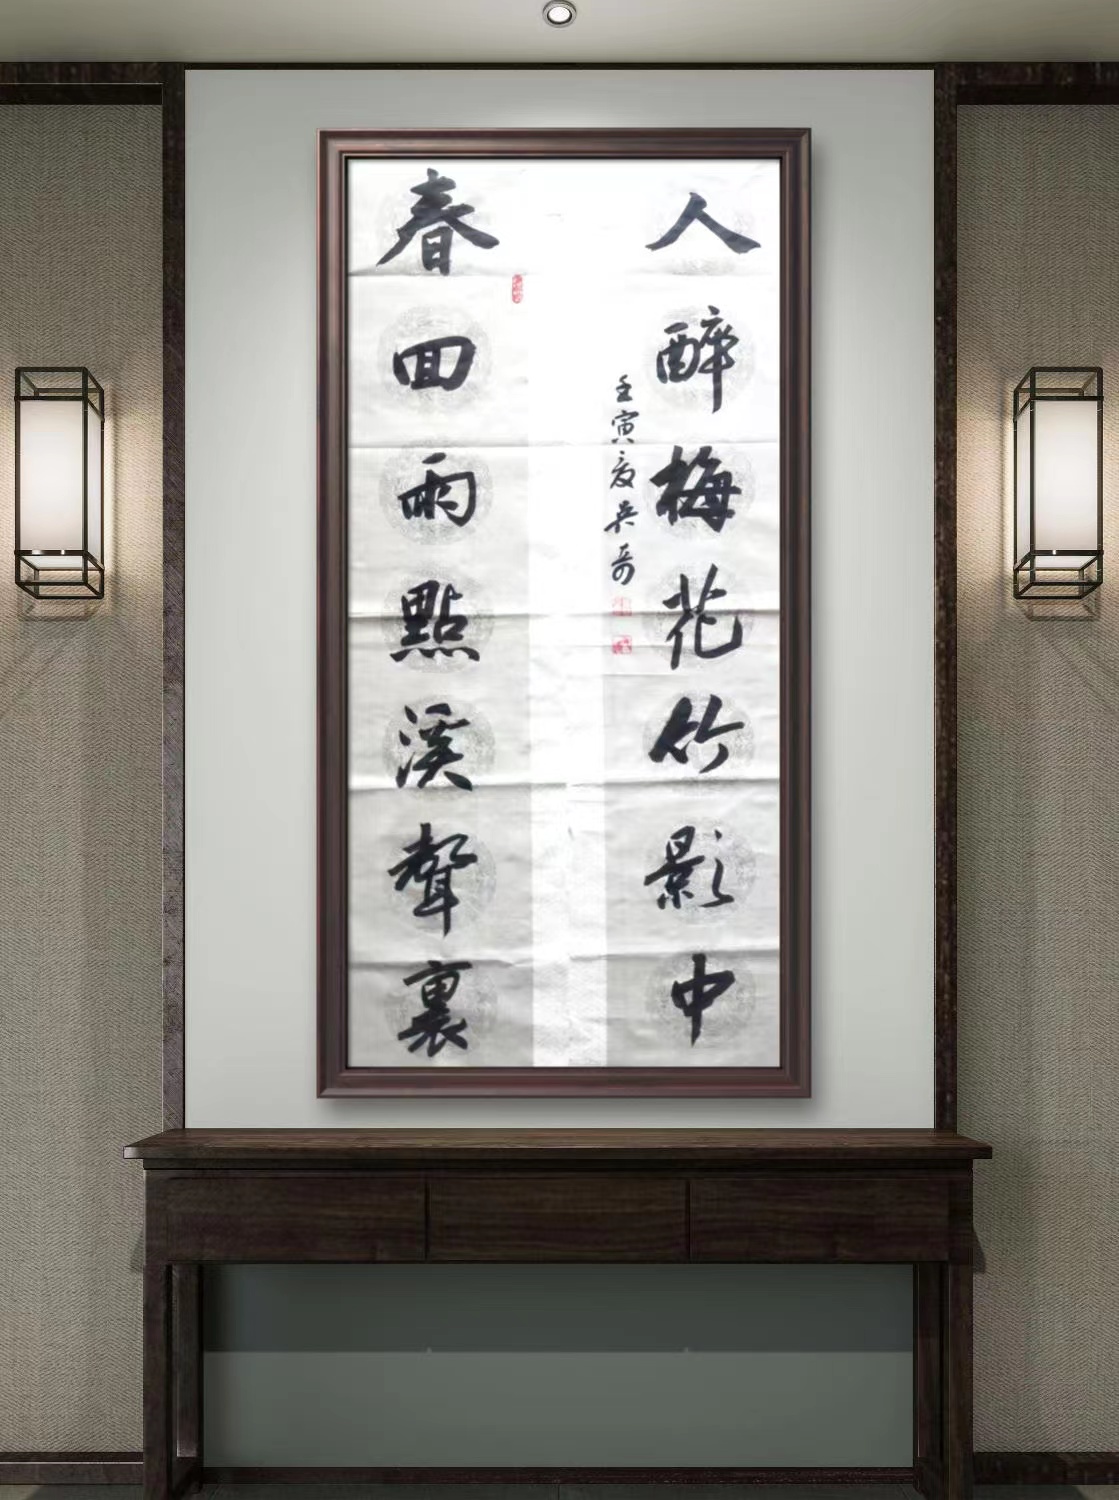 人醉梅花竹影中
春回雨點溪聲裏
壬寅夏吳奇